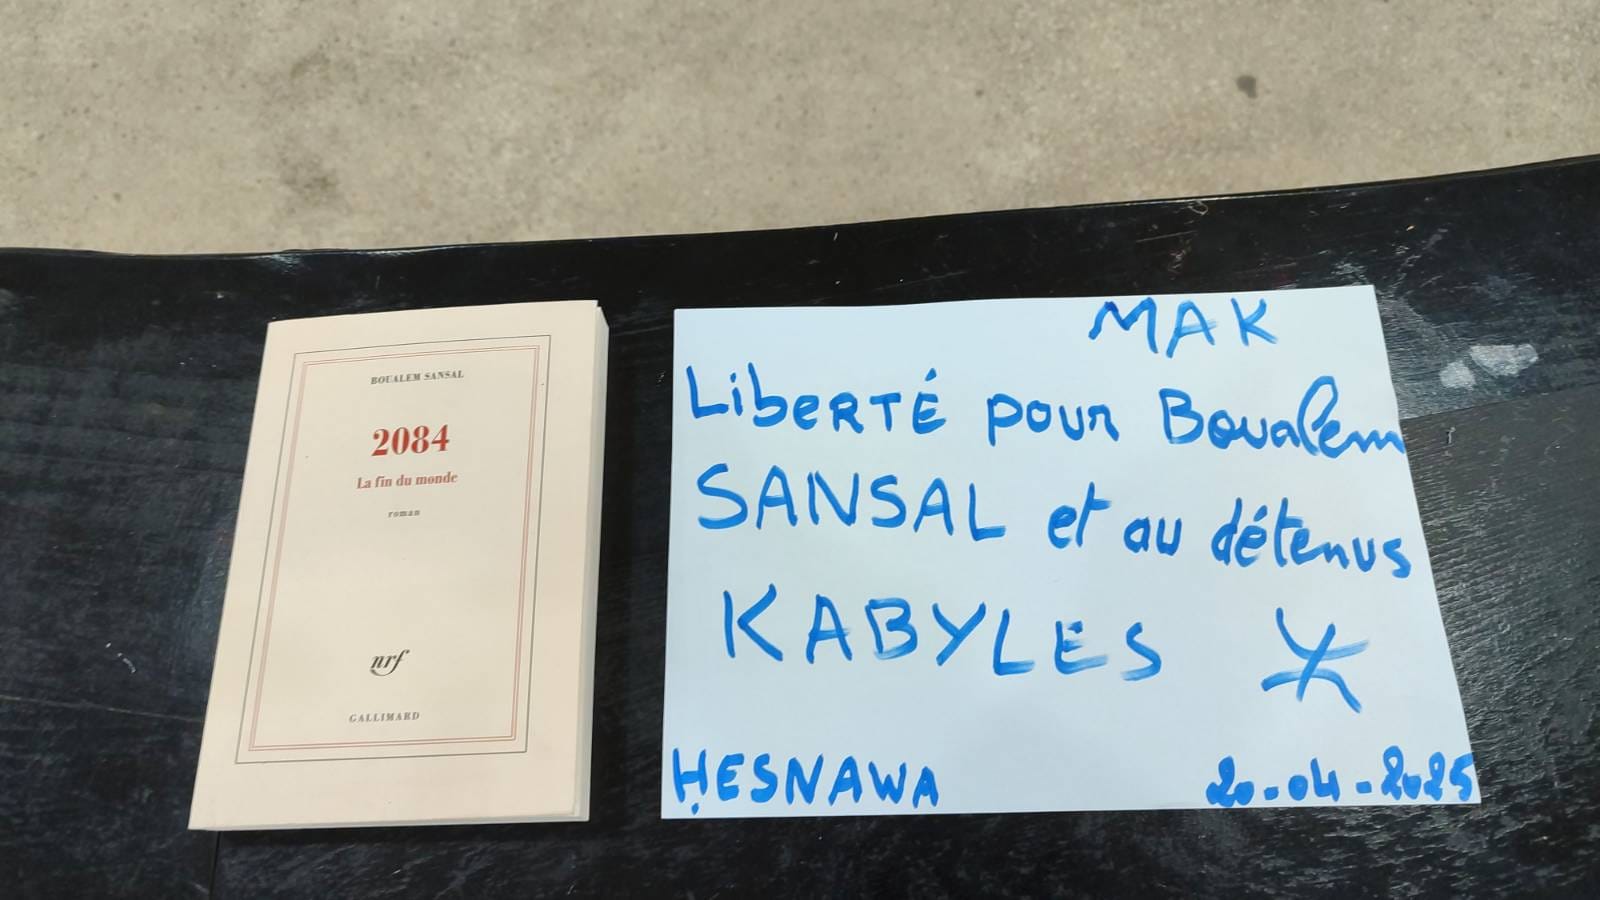 BOUALEM SANSAL
2084
La fin du monde
roman
nrf
GALLIMARD
MAK
LibeRTÉ pour Boualem
SANSAL et au détenus
KABYLES ⵣ
ḤESNAWA
20-04-2025